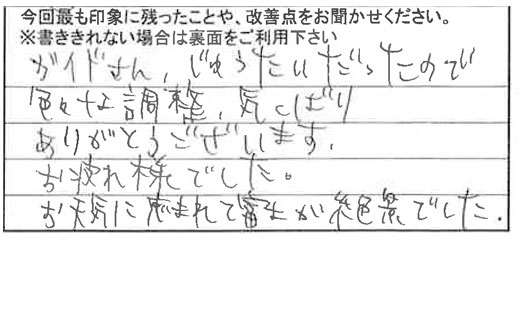 今回最も印象に残ったことや、改善点をお聞かせください。
※書ききれない場合は裏面をご利用下さい
ガイドさん、じゅうたいだったので
色々な調整、気くばり
ありがとうございます。
お疲れ様でした。
お天気に恵まれて富士が絶景でした.